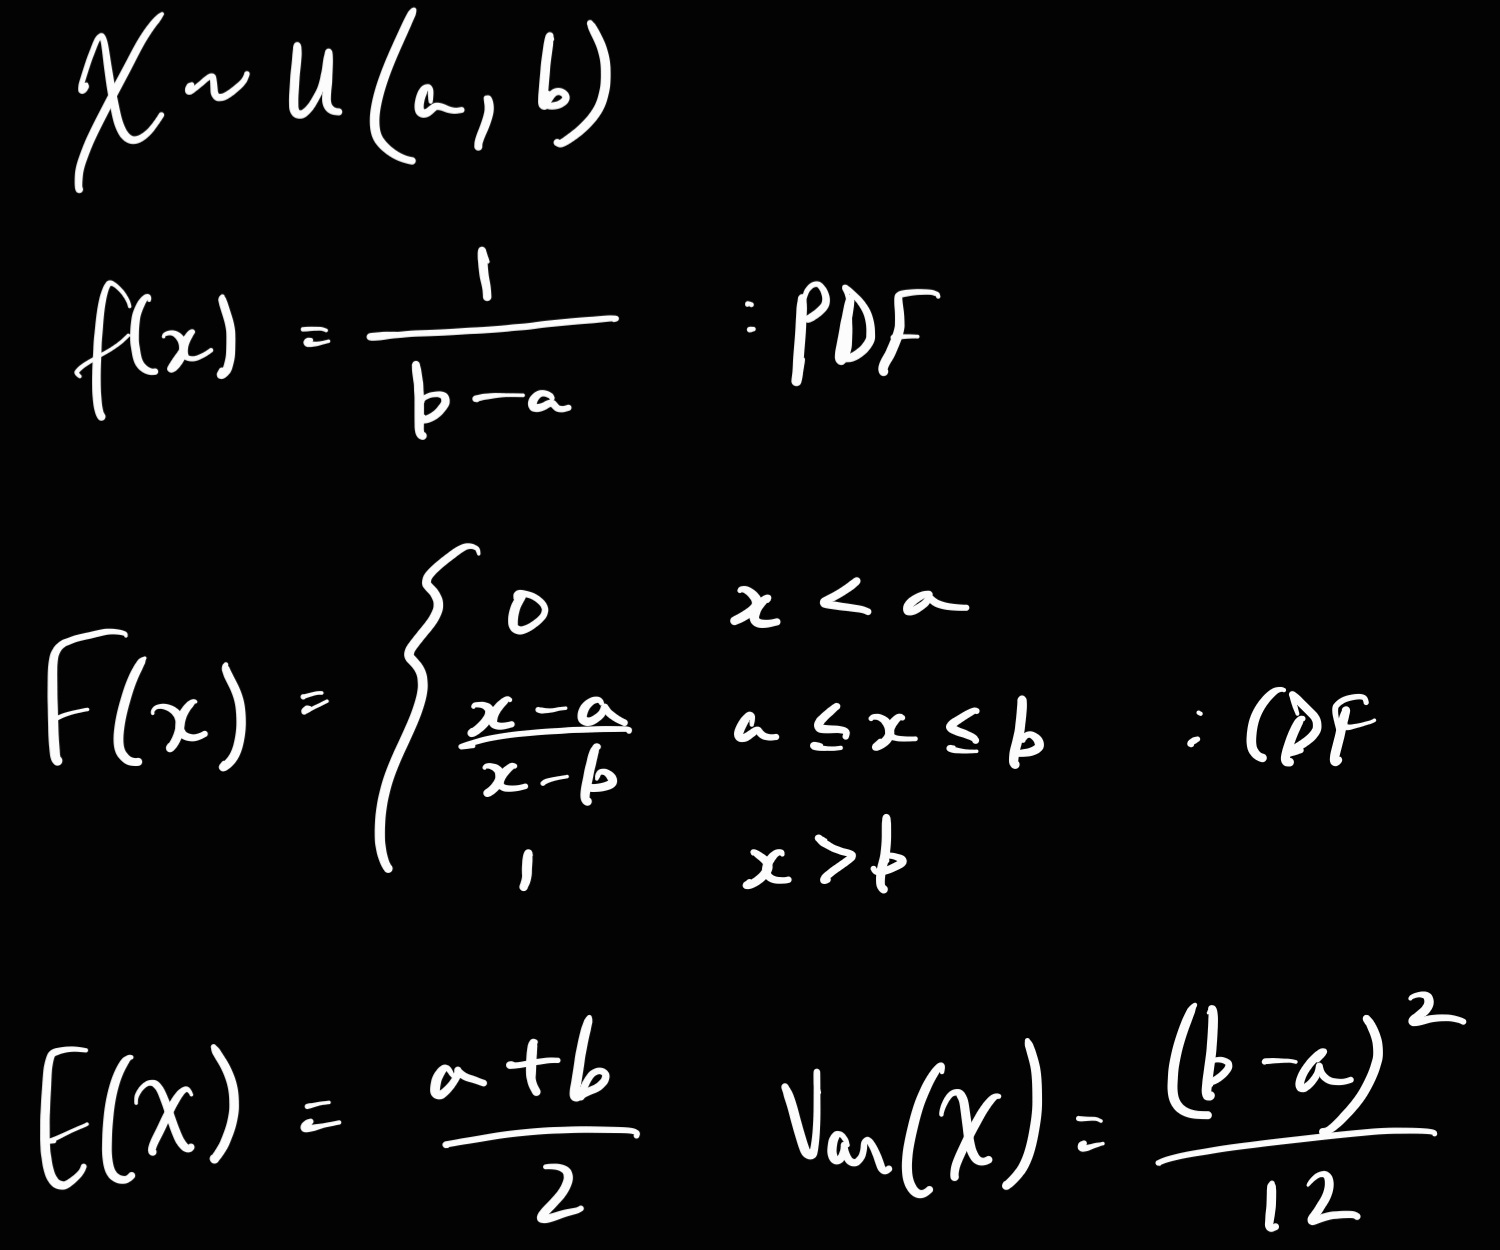 X ~ U(a, b)
f(x) = 1/(b-a) : PDF
F(x) = { 0 x < a
(x-a)/(x-b) a ≤ x ≤ b : CDF
1 x > b
E(X) = (a+b)/2 Var(X) = (b-a)^2/12